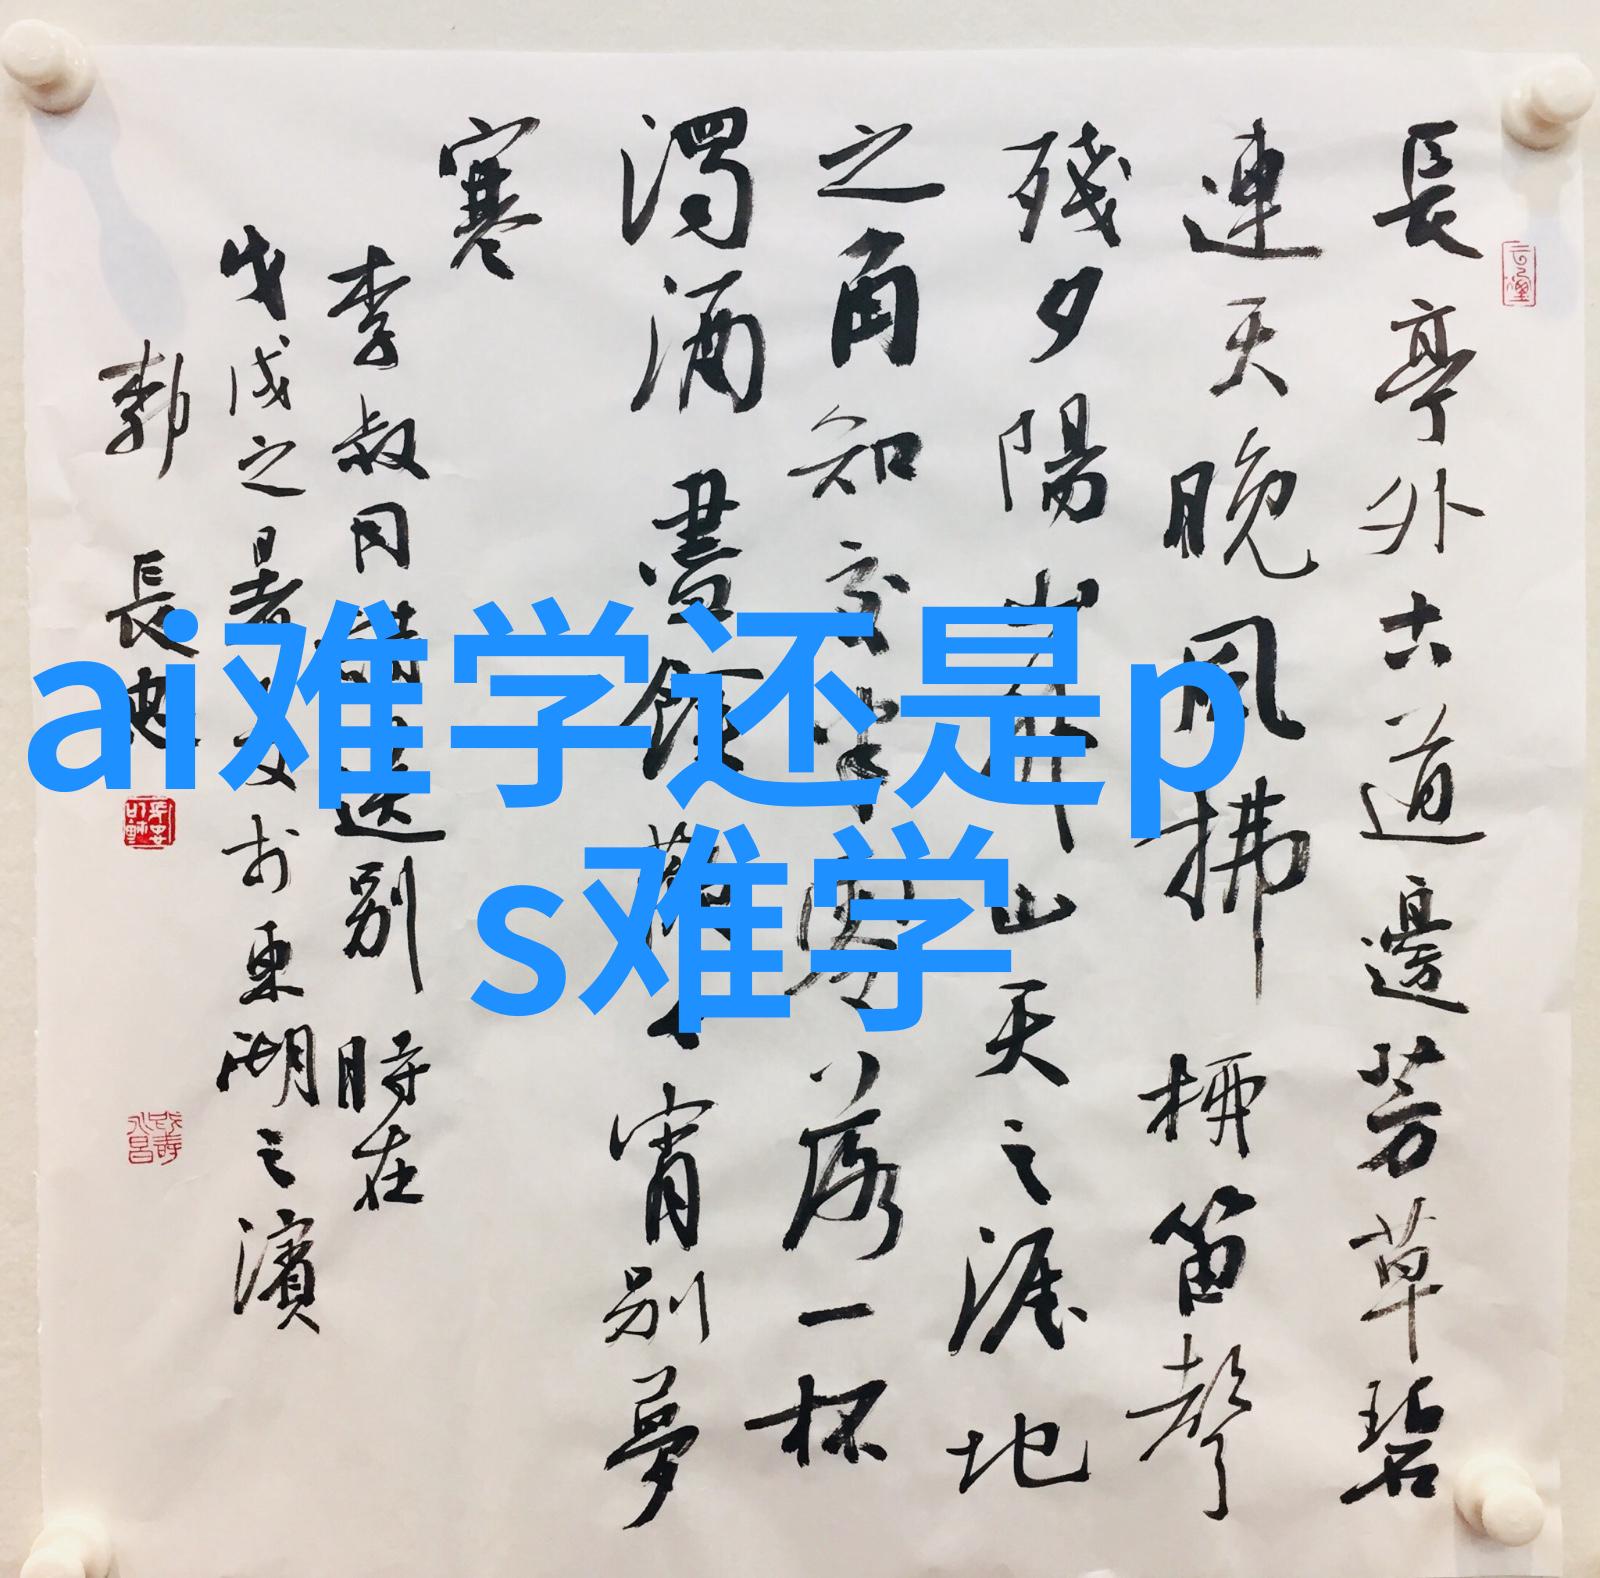 長亭外古道邊芳草碧
連天晚風拂柳笛聲
殘夕陽山外山天之涯地
之角知交半零落一杯
濁酒盡餘歡今宵別夢
寒
李叔同詩送別 時在
戊戌之暑 於東湖之濱
郭長
ai难学还是p
s难学